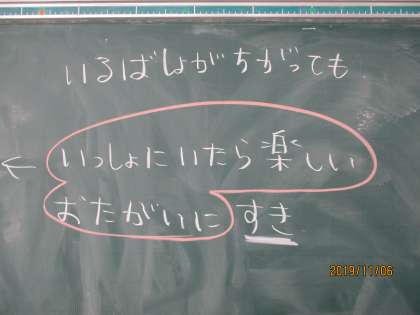 いるばしょがちがっても
いっしょにいたら楽しい
おたがいに すき
←
2019/11/06